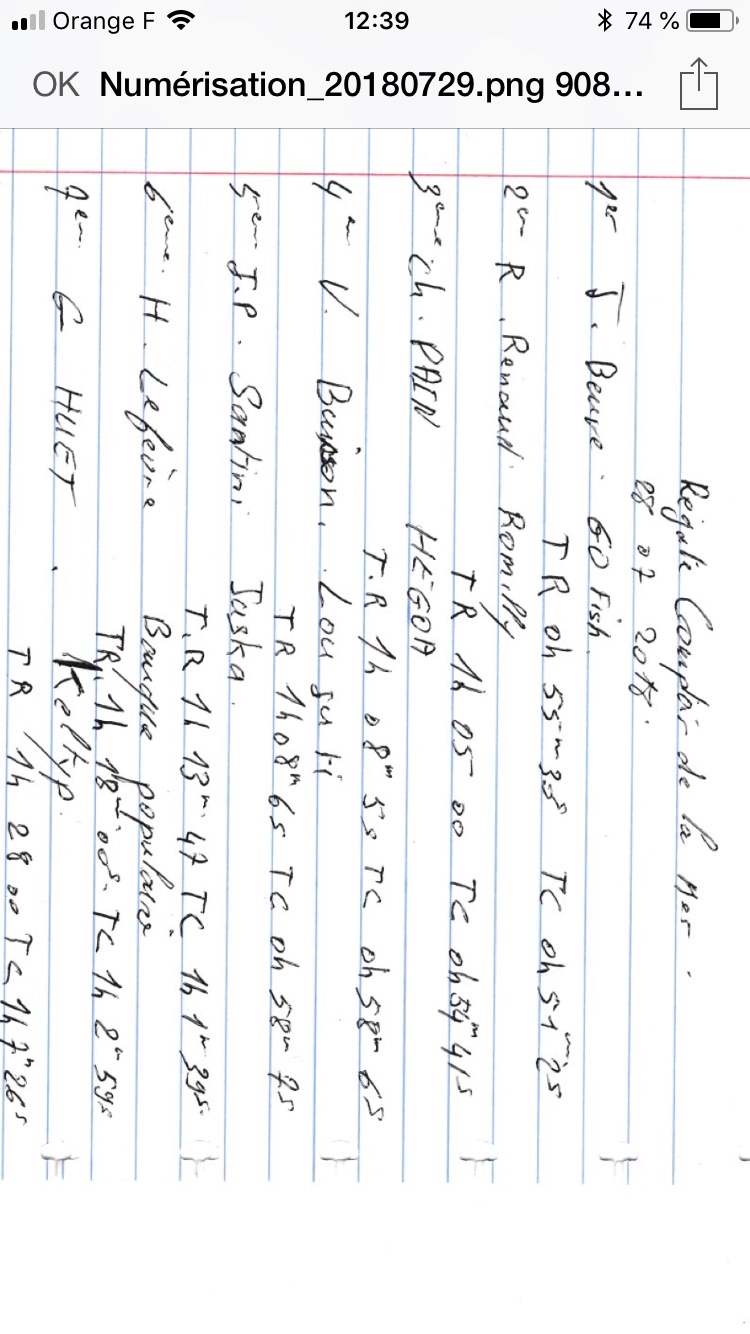 Orange F 12:39 74 %
OK Numérisation_20180729.png 908...
Régate Comptoir de la Mer.
28 07 2018.
1er J. Beuve. GO Fish
TR 0h 55m 39s TC 0h 51m 25
2em R. Renaud. Romilly
TR 1h 05 00 TC 0h 54m 41s
3eme Ch. PAIN HÉGOA
T.R 1h 08m 5s TC 0h 58m 6s
4em V. Buisson. Lou juti
TR 1h 08m 6s TC 0h 58m 7s
5em J.P. Santini Juska.
T.R 1h 13m 47 TC 1h 1m 39s.
6eme. H. Lefèvre Banque populaire
TR 1h 18m 00s. TC 1h 2m 59s
7em. G HUET. Keltyp.
TR 1h 28 00 TC 1h 7m 26s